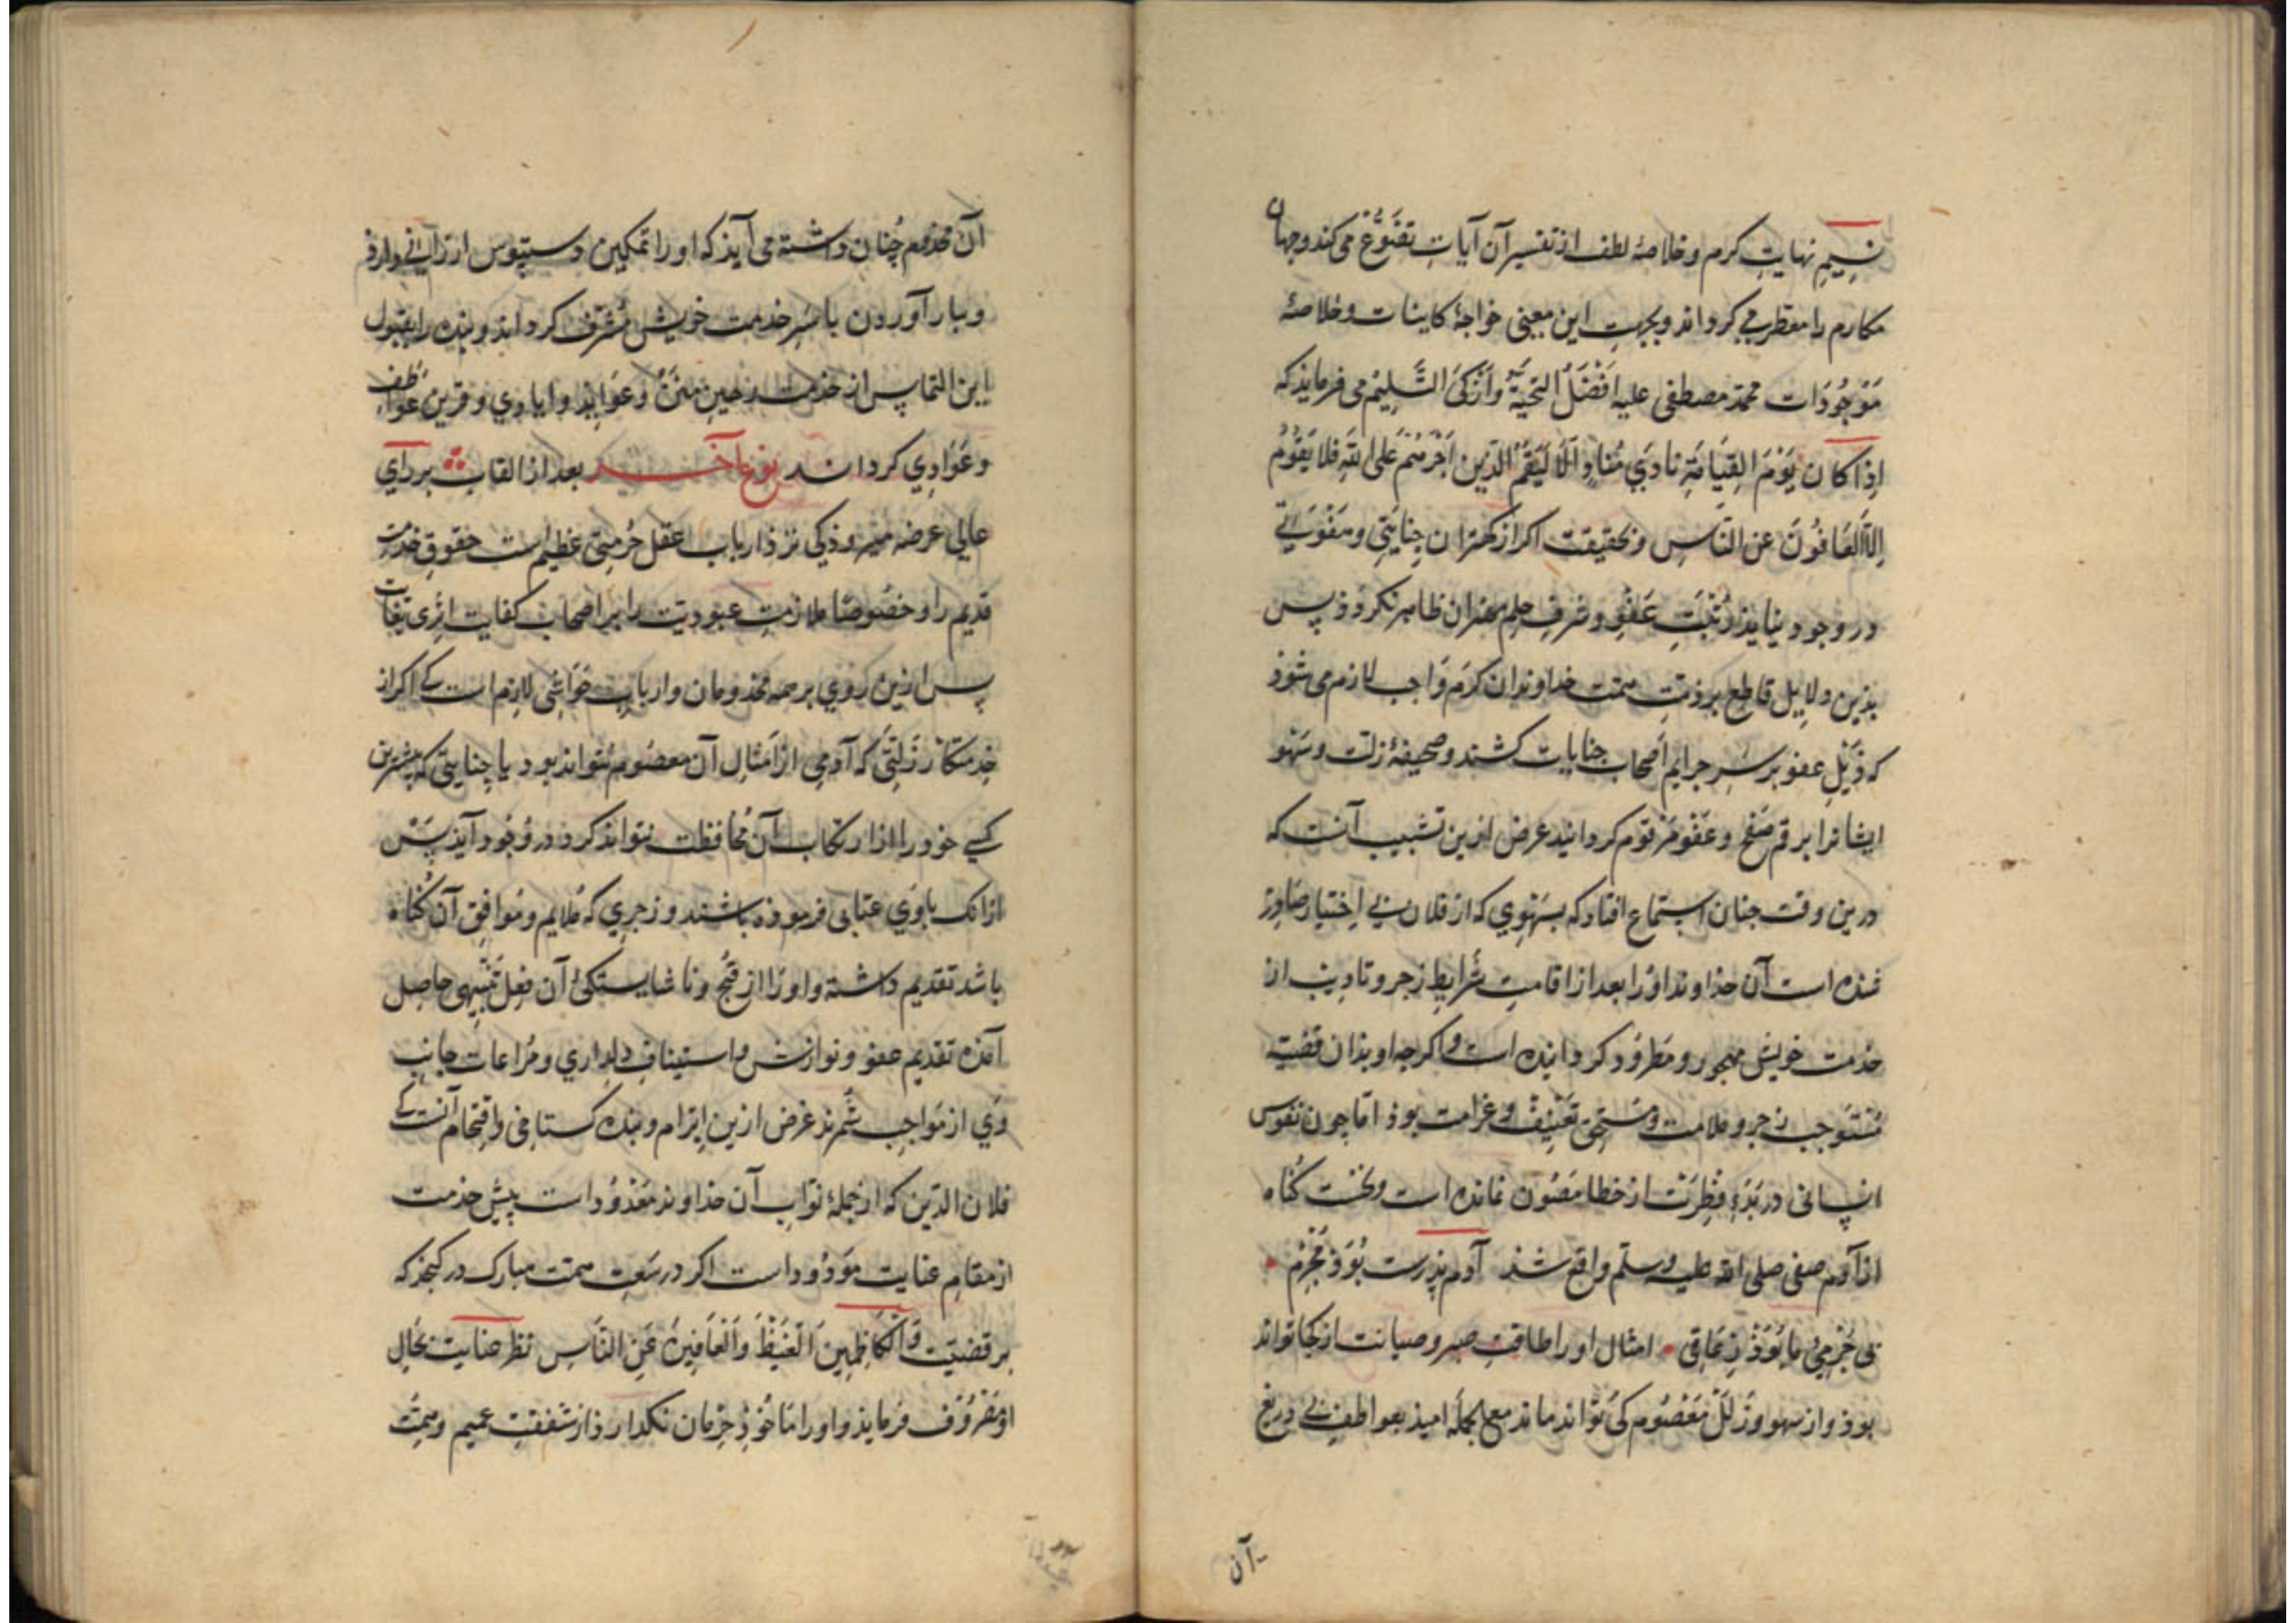 نسیم نهایت کرم و خلاصهٔ لطف از تفسیر آن آیات تضوّع می کند و جهان
مکارم را معطر می کرداند و بجهت این معنی خواجهٔ کاینات و خلاصهٔ
مَوجُودَات محمّد مصطفی علیه اَفْضَلُ التحیّة وَاَزْکیَ التَّسلیم می فرماید که
اِذَا کَان یَوْمَ القِیَامَةِ نادَی مُنَادٍ اَلَا لَیَقُم الّذین اَجْرَمْتم عَلی الله فَلا یَقُومُ
اِلاّ العَافُونَ عن النّاسِ و بحقیقت اکر از کهتران جنایتی و هَفْوَتی
در وجود نیایذ رُتْبَتِ عَفْو و شرفِ حِلم مهتران ظاهر نکردد ذ پس
بذین دلایل قاطع بر ذمّتِ همّت خداوندان کرَم وَاجب لازم می شوذ
که ذَیْلِ عفو بر سَرِ جرایم اَصحاب جنایات کشند و صحیفهٔ زلت و سَهو
ایشانرا برقم صَفْح و عَفْو مَرْقوم کردانید غرض ازین تشبیب آنست که
درین وقت جنان استماع افتاد که بسَهْوی که از فلان بی اِختیار صَادِر
شده است آن خذاوند اوُ را بعد از اقامتِ شَرایطِ زجر و تادیب از
خدمت خویش مهجور و مَطرُود کردانیده است و اکرجه او بذان قضیّه
مُسْتَوجب زجر و ملامت و مستحق تَعْنِیْفْ و غرامت بوذ امّا جون نفوس
انسانی در بَدْوِ فِطرَتْ از خطا مَصُون نمانده است و نخست کُناه
از آدم صفی صلی الله علیه و سلّم واقع شذ آدم بذرست بُوَذ مُجْرِمْ
بی جُرمیْ مأخُوذْ ذِعاقی امثال او را طاقتِ صبر و صیانت از کجا تواند
بوذ و از سهو و زَلَلْ مَعْصُوم کی تواند ماند مع الجملَه امیذ بعواطف بی دریغ
آن
آن مخدوم چُنان داشته می آیذ که او را تمکین دستبوس ارزانی دارذ
و ببار آوردن با سَرِ خدمت خویش مُشرّف کرداند و بنده را بقبول
این التماس از خدمت رهین مِنَنْ و عَوایذ و ایادی و قرین عَوَاطِف
و عَوَادِی کردانند نوع آخر بعد از القاب بر رای
عالی عرضه میر وذکی نزد ارباب عقل حُرمتی عظیم است حقوق خدمت
قدیم را و خصُوصًا ملازمتِ عبودیّت را بر اصحاب کفایت اثری تبعات
پس ازین رُوی بر همه مخدومان و اربابِ حَوَاشی لازم است کی اکر از
خِدمتکار زَلّتیْ که آدمی از اَمثالِ آن معصُوم نتواند بود یا جِنایتی که بیشترین
کسی خود را از ارتکاب آن مُحافظت نتواند کرد در وُجُود آیذ پَسْ
ازانک با وَی عتابی فرموده باشند و زجری که مُلایم و مُوافِقِ آن کُناه
باشد تقدیم داشته و او را از قُبْح و ناشایستکیٔ آن فِعل تَنْبِیهی حاصِل
آمَذه تقدیم عفو و نوازش و استینافِ دِلداری و مُراعات جانِبِ
وَی از مَواجِب شُمُرند غرض ازین اِبْرَام و بنده کستاخی و اِقتحام آنست کی
فلان الدّین که از جُملهٔ نوّاب آن خذاوند مَعْدُوُد است پیش خدمت
از مقامِ عنایت مَوْدُود است اکر در سَعَتِ همّت مبارک در کنجذ که
بر قضیّت وَالْکَاظِمِینَ الْغَیْظَ وَالْعَافِینَ عَنِ النَّاسِ نظرِ عنایت بحَالِ
او مَصْرُوُف فرمایذ و او را مأخُوذِ جِرمان نکذارذ از شفقتِ عمیم و همّت